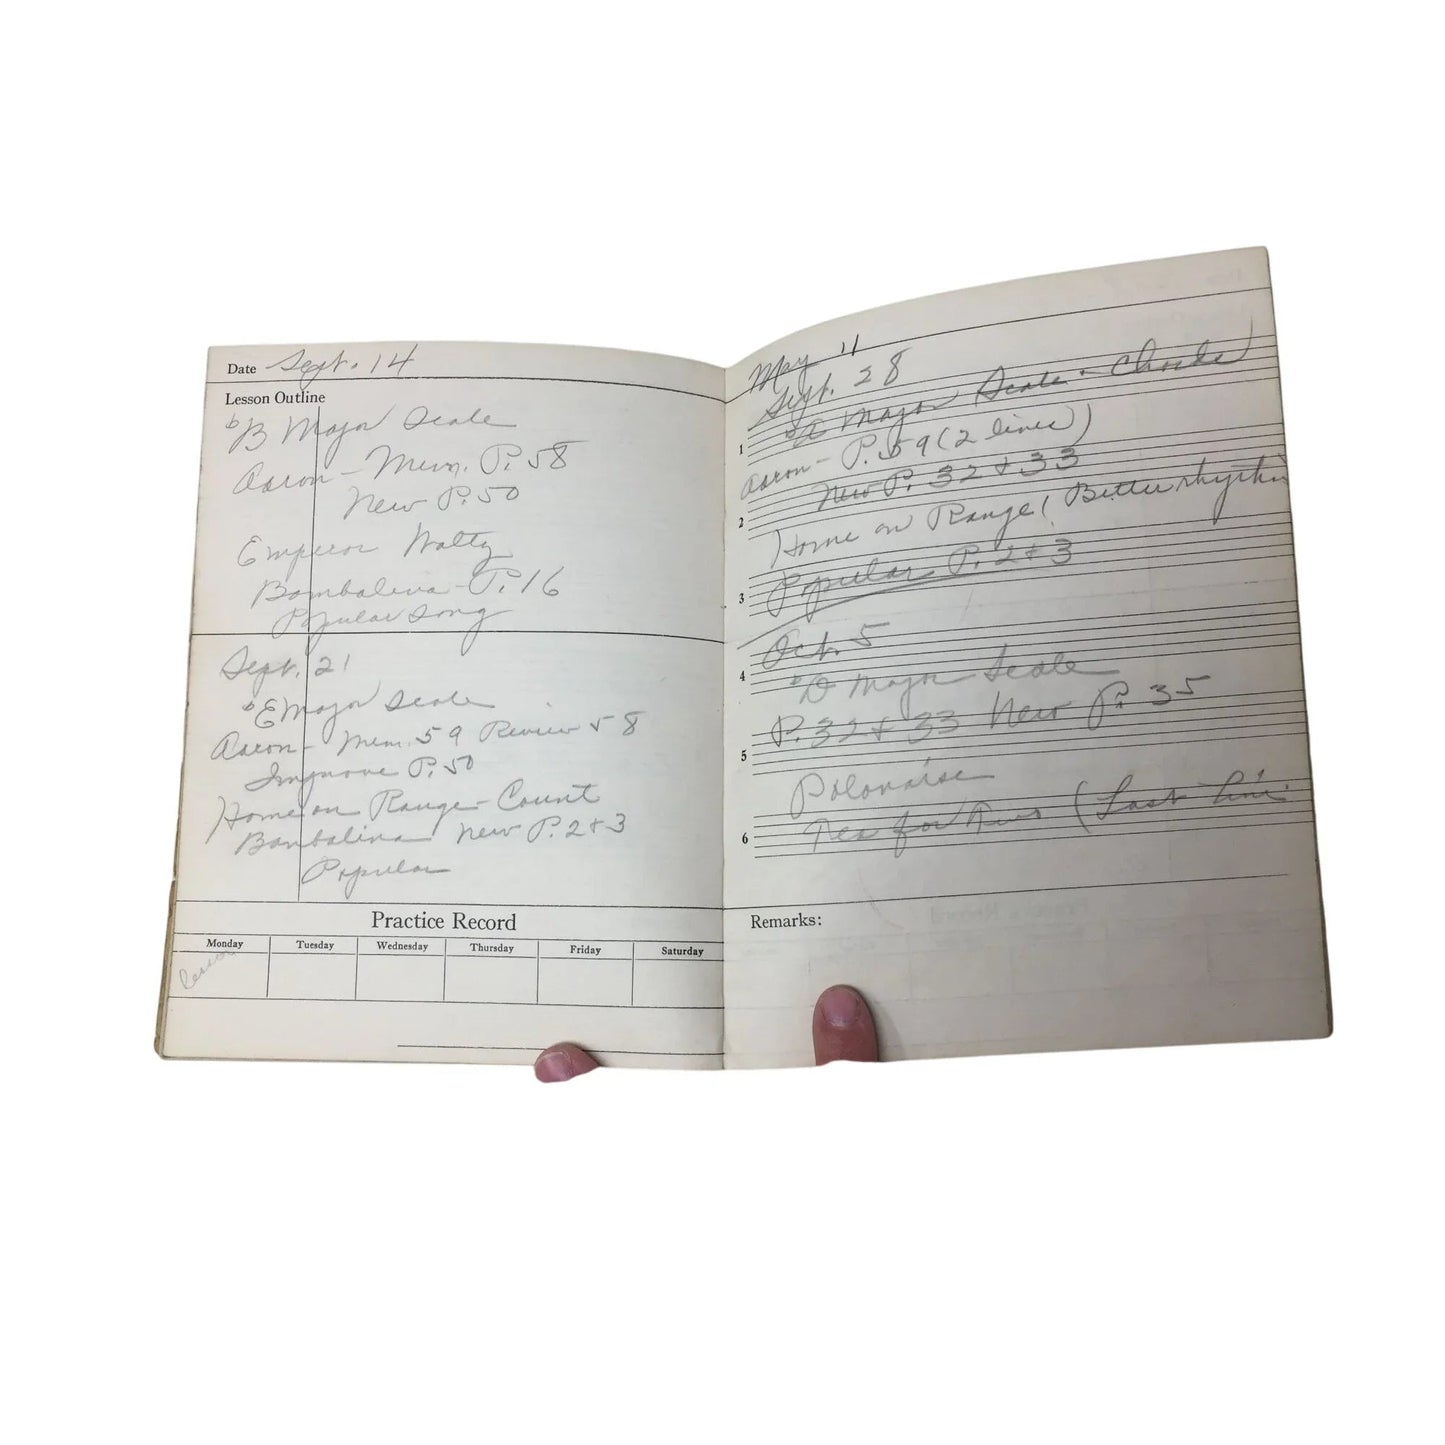 Date Sept. 14
Lesson Outline
♭B Major Scale
Aaron - Mem. P. 58
New P. 50
Emperor Waltz
Bombalina - P. 16
Popular Song
Sept. 21
♭E Major Scale
Aaron - Mem. 59 Review 58
Improve P. 50
Home on Range - Count
Bambalina New P. 2 & 3
Popular
Practice Record
Monday Tuesday Wednesday Thursday Friday Saturday
lesson
May 11
Sept. 28
1 Major Scale - Chords
Aaron - P. 59 (2 lines)
New P. 32 & 33
2
Home on Range ( Better rhythm
Popular P. 2 & 3
3
Oct. 5
4 ♭D Major Scale
P. 32 & 33 New P. 35
5
Polonaise
6 Tea for Two ( Last line
Remarks: